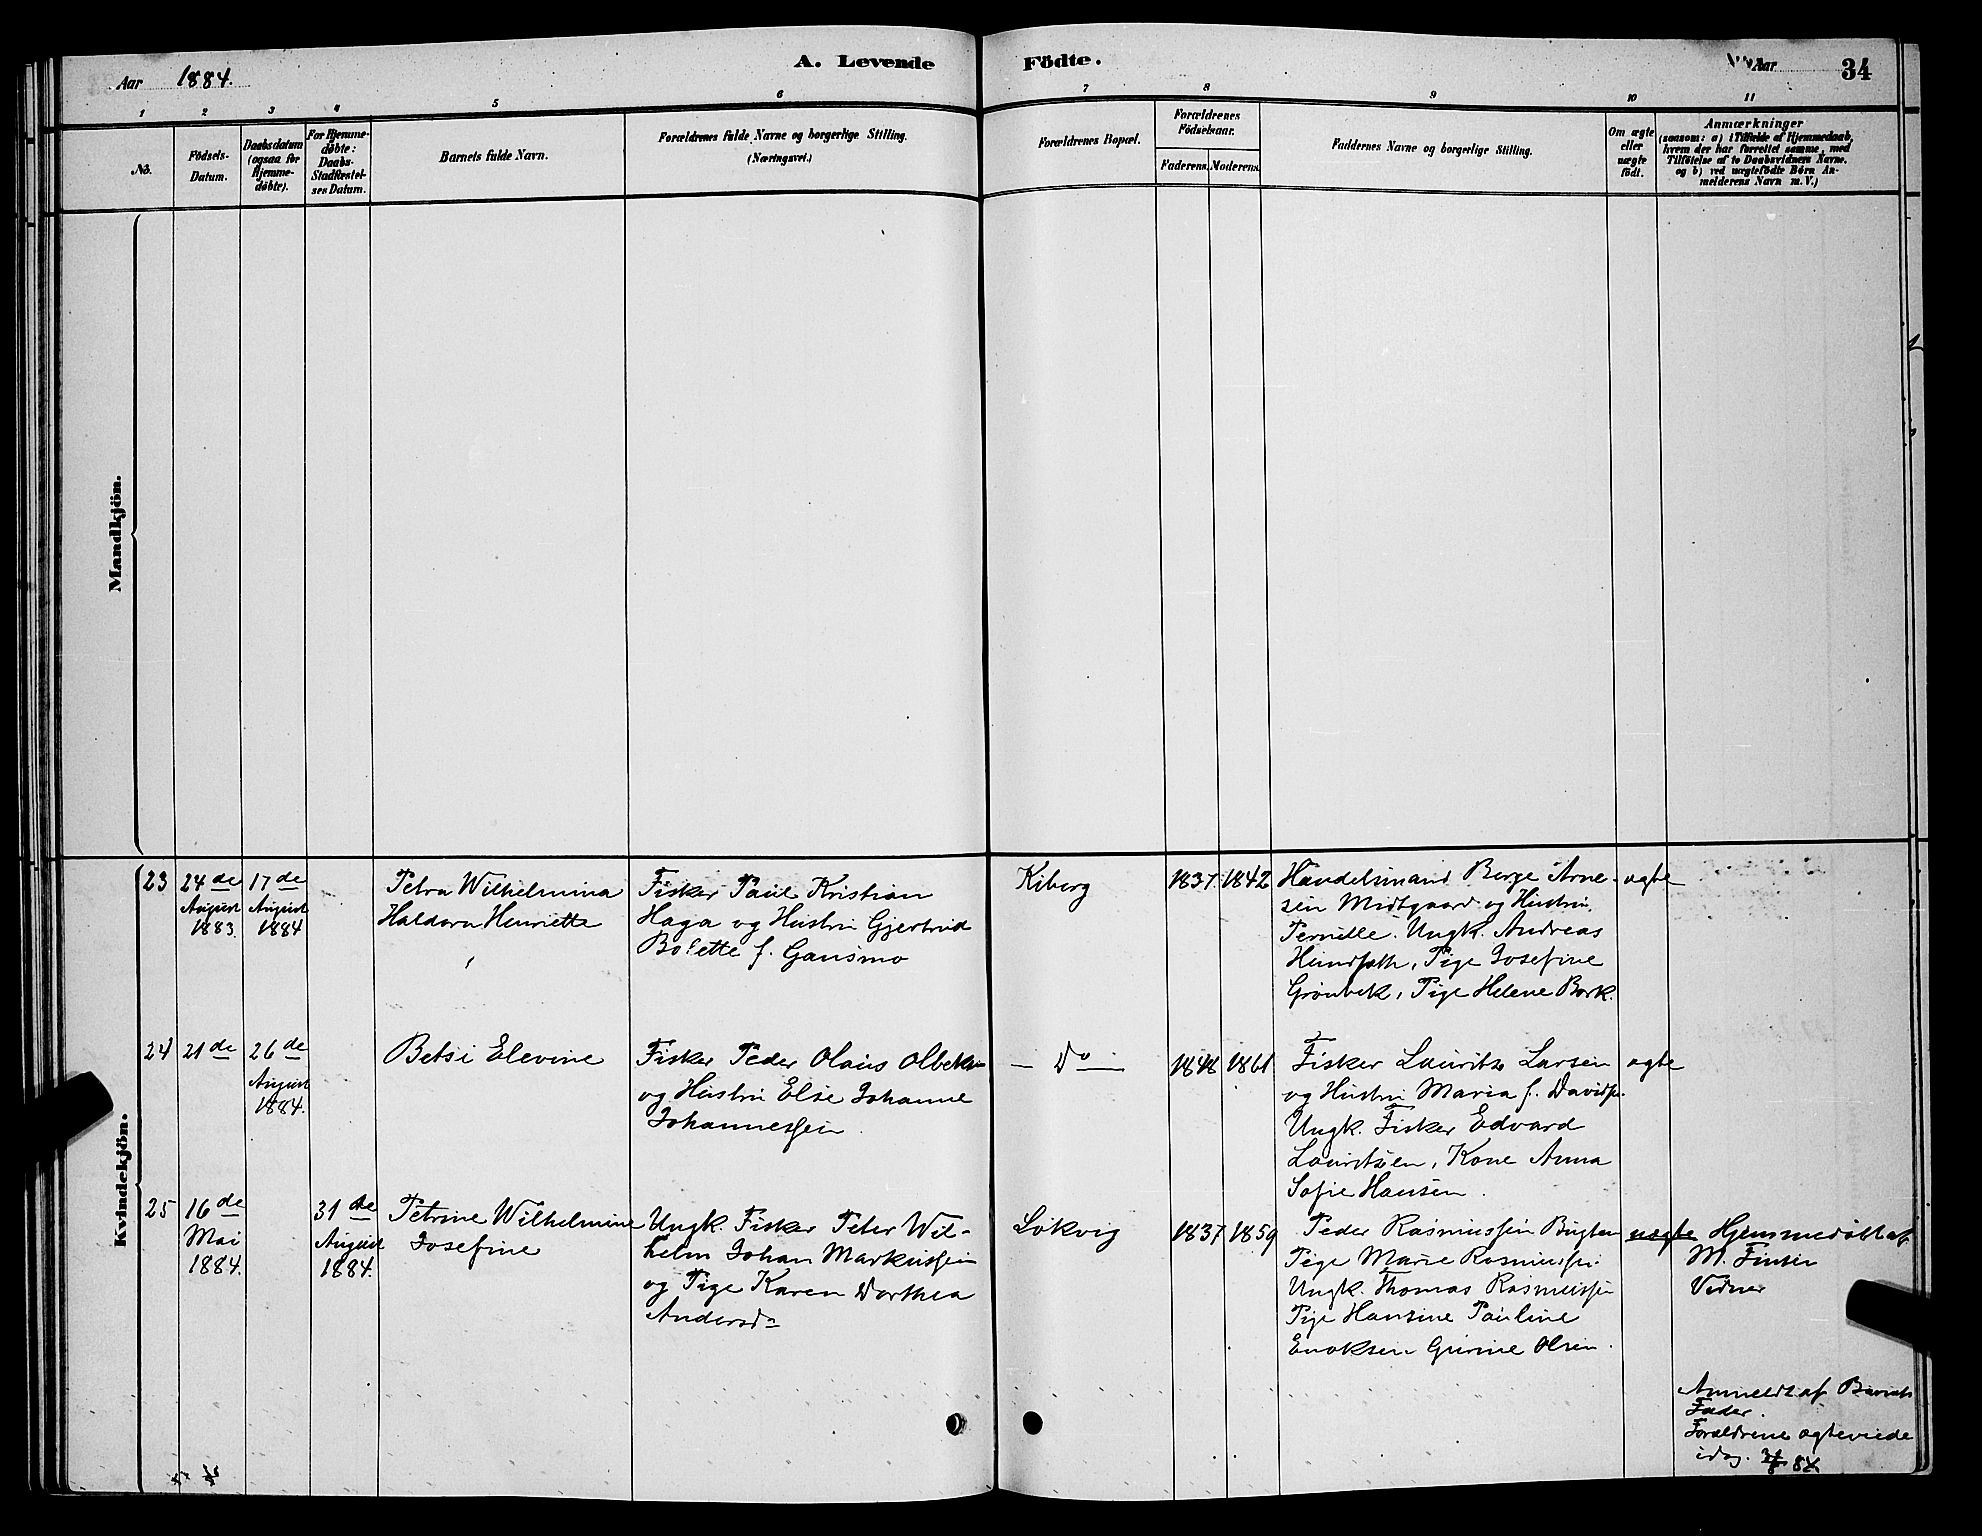 Aar 1884.
A. Levende
Födte.
Aar
34
1 2 3 4 5 6 7 8 9 10 11
No.
Födsels-
Datum.
Daabsdatum
(ogsaa for
Hjemme-
døbte).
For Hjemme-
døbte:
Daabs-
Stadfæstel-
ses Datum.
Barnets fulde Navn.
Forældrenes fulde Navne og borgerlige Stilling.
(Næringsvei.)
Forældrenes Bopæl.
Forældrenes
Födselsaar.
Faderens. Moderens.
Faddernes Navne og borgerlige Stilling.
Om ægte
eller
uægte
født.
Anmærkninger
(saasom: a) i Tilfælde af Hjemmedaab,
hvem der har forrettet samme, med
Tilföielse af to Daabsvidners Navne.
og b) ved uægtefödte Börn An-
melderens Navn m. V.)
Mandkjön.
Kvindekjön.
23
24 de
August
1883.
17 de
August
1884
Petra Wilhelmina
Haldora Henriette
Fisker Paul Kristian
Haga og Hustru Gjertrud
Bolette f. Gausmo
Kiberg
1837
1842
Handelsmand Berge Arne-
sen Midtgaard og Hustru
Pernille. Ungk. Andreas
Pige Josefine
Grönbek, Pige Helene Bork.
ægte
24
21 de
26 de
August
1884.
Betsi Elevine
Fisker Peder Olaus
og Hustru Else Johanne
Johannessen
— Do —
1848
1861
Fisker Lauritz Larsen
og Hustru Maria f. Davids.
Ungk. Fisker Edvard
Lauritsen, Kone Anna
Sofie Hansen.
ægte
25
16 de
Mai
1884.
31 de
August
1884.
Petrine Wilhelmine
Josefine
Ungk. Fisker Peter Wil-
helm Johan Markussen
og Pige Karen Dorthea
Andersd.
Lökvig
1837
1859
Peder Rasmussen
Pige Marie Rasmussen.
Ungk. Thomas Rasmussen
Pige Hansine Pauline
Enoksen Gurine Olsen.
uægte
Hjemmedöbt af
M.
Vidner
Anmeldt af Barnets
Fader.
Forældrene ægteviede
idag. 31/8 84.